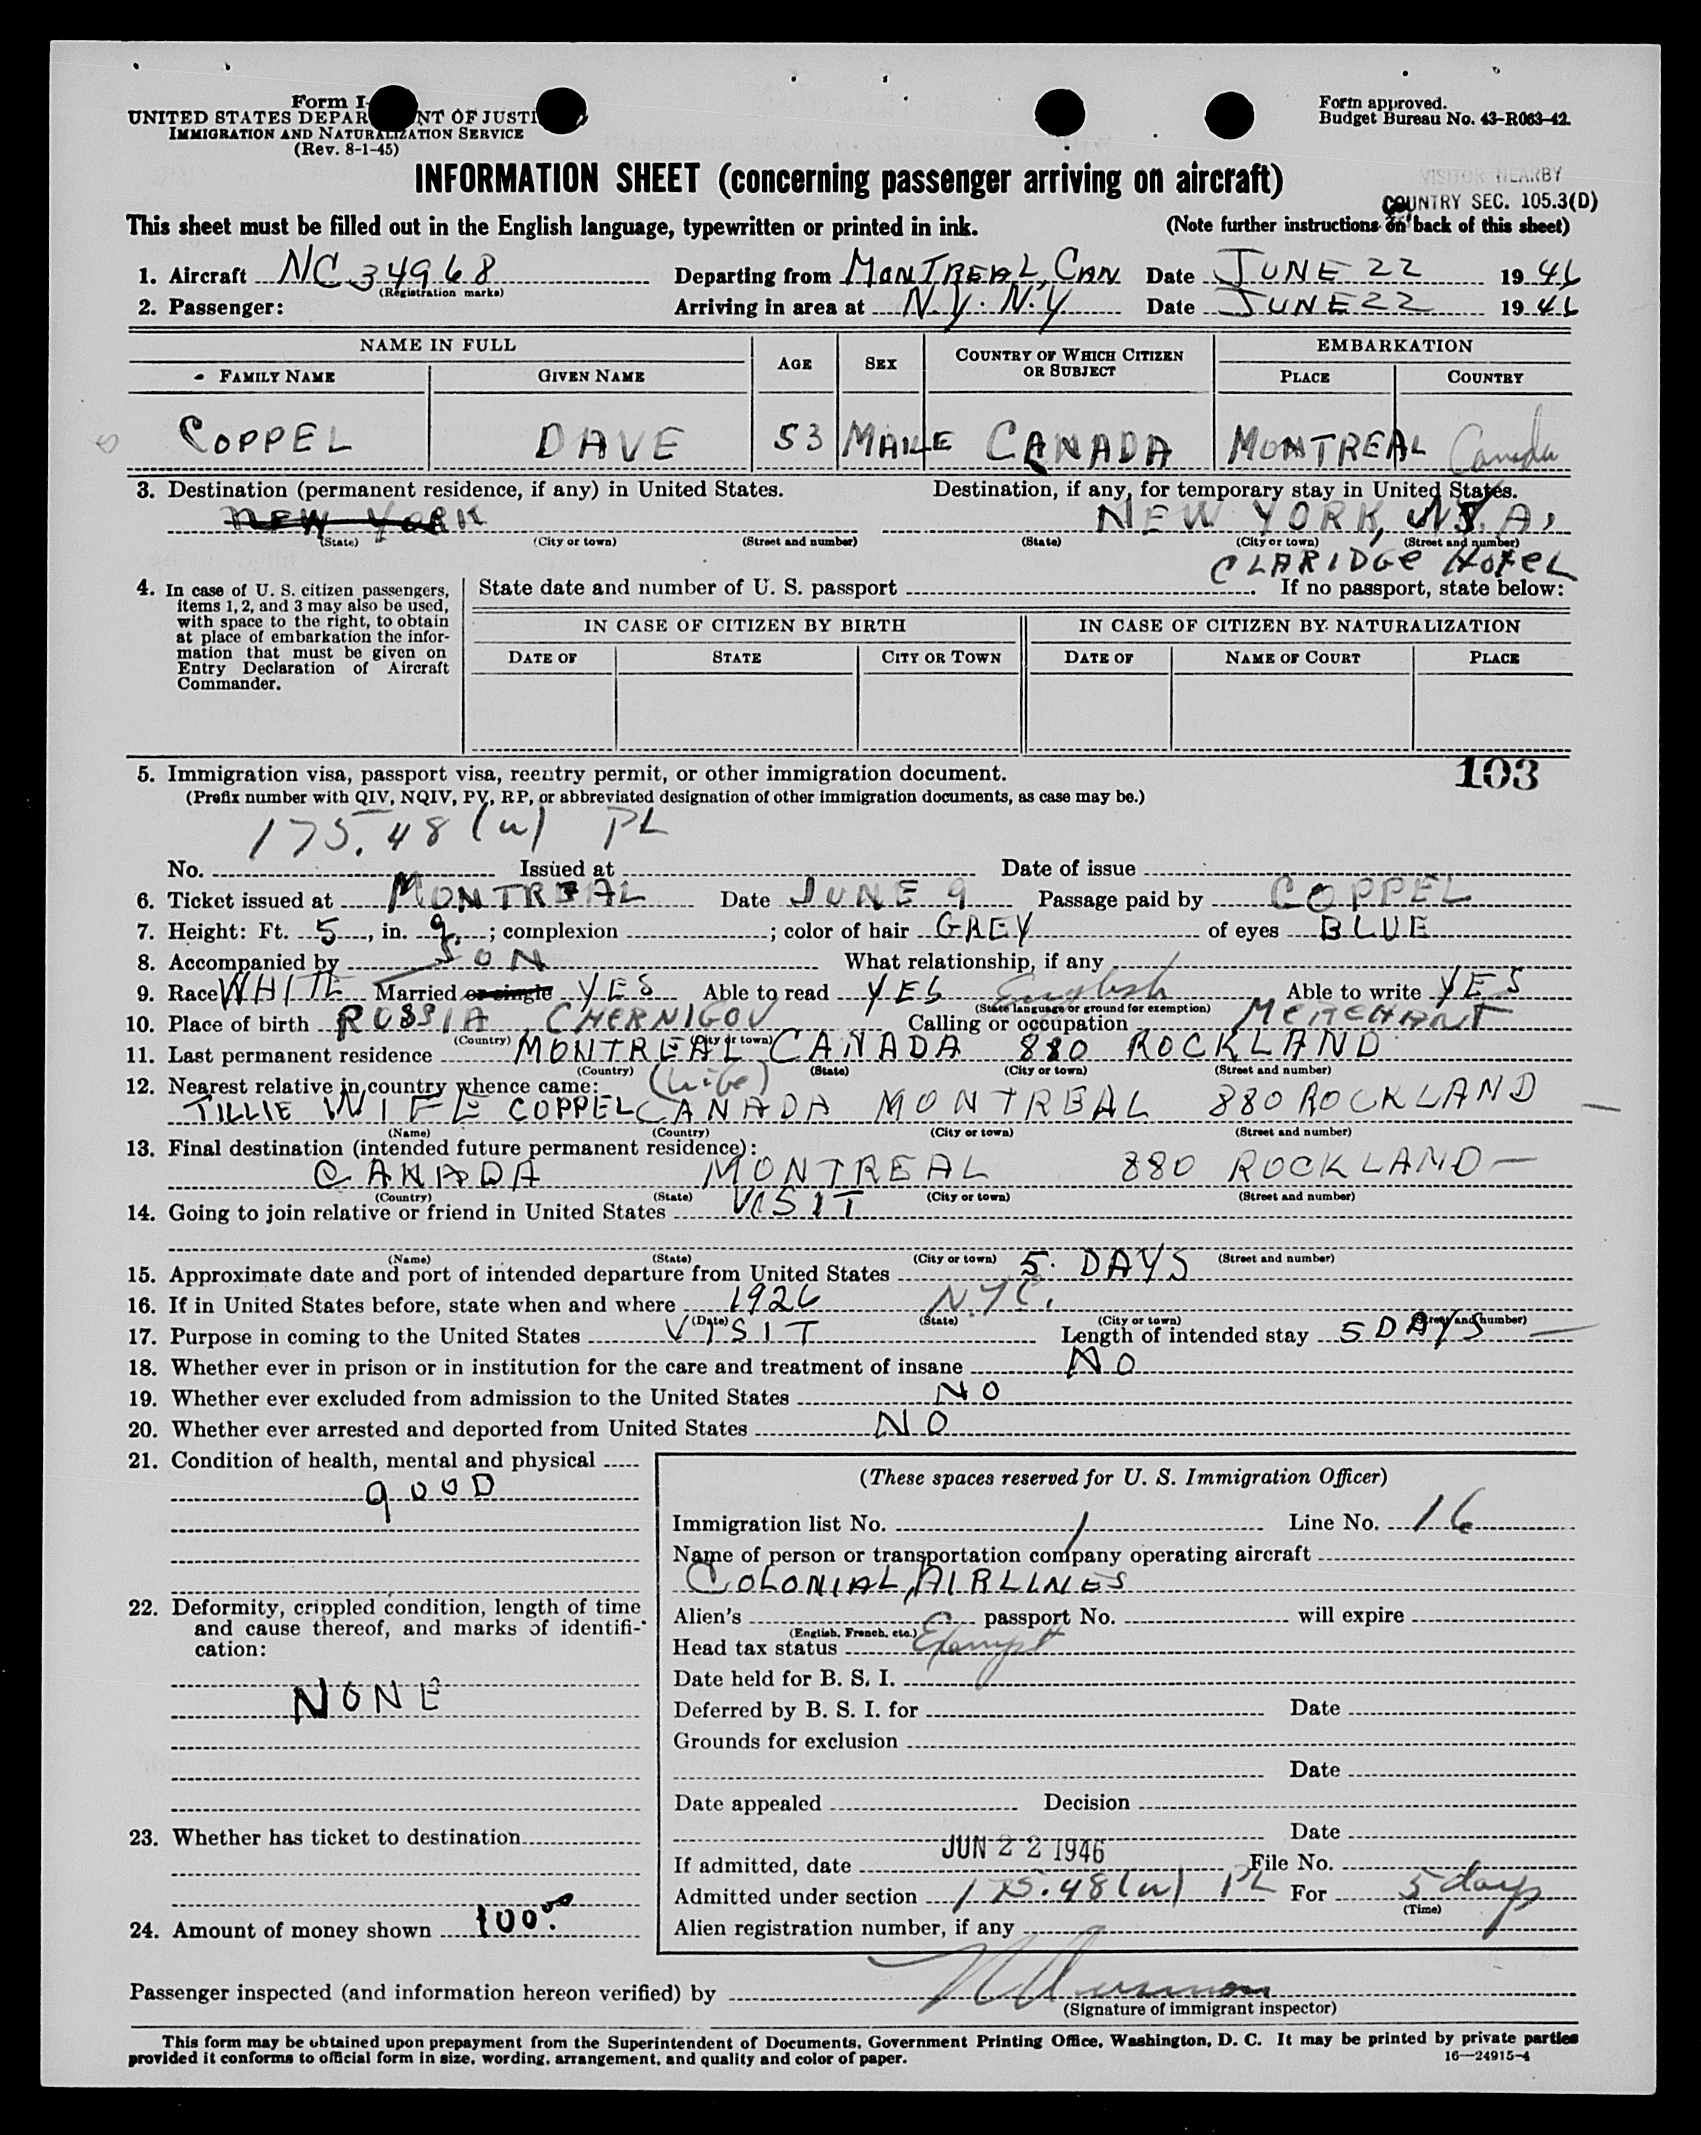 Form I-
UNITED STATES DEPAR NT OF JUSTI
IMMIGRATION AND NATURALIZATION SERVICE
(Rev. 8-1-45)
Form approved.
Budget Bureau No. 43-R063-42.
INFORMATION SHEET (concerning passenger arriving on aircraft)
VISITOR NEARBY
COUNTRY SEC. 105.3(D)
This sheet must be filled out in the English language, typewritten or printed in ink. (Note further instructions on back of this sheet)
1. Aircraft NC 34968 Departing from MONTREAL, CAN Date JUNE 22 1946
(Registration marks)
2. Passenger: Arriving in area at N.Y. N.Y Date JUNE 22 1946
NAME IN FULL EMBARKATION
FAMILY NAME GIVEN NAME AGE SEX COUNTRY OF WHICH CITIZEN OR SUBJECT PLACE COUNTRY
COPPEL DAVE 53 MALE CANADA MONTREAL Canada
3. Destination (permanent residence, if any) in United States. Destination, if any, for temporary stay in United States.
NEW YORK NEW YORK, N.Y.
(State) (City or town) (Street and number) (State) (City or town) (Street and number)
CLARIDGE HOTEL
4. In case of U. S. citizen passengers, items 1, 2, and 3 may also be used, with space to the right, to obtain at place of embarkation the information that must be given on Entry Declaration of Aircraft Commander.
State date and number of U. S. passport If no passport, state below:
IN CASE OF CITIZEN BY BIRTH IN CASE OF CITIZEN BY NATURALIZATION
DATE OF STATE CITY OR TOWN DATE OF NAME OF COURT PLACE
103
5. Immigration visa, passport visa, reentry permit, or other immigration document.
(Prefix number with QIV, NQIV, PV, RP, or abbreviated designation of other immigration documents, as case may be.)
175.48(w) PL
No. Issued at Date of issue
6. Ticket issued at MONTREAL Date JUNE 9 Passage paid by COPPEL
7. Height: Ft. 5, in. 9.; complexion ; color of hair GREY of eyes BLUE
8. Accompanied by SON What relationship, if any
9. Race WHITE Married or single YES Able to read YES English Able to write YES
(State language or ground for exemption)
10. Place of birth RUSSIA CHERNIGOV Calling or occupation MERCHANT
(Country) (City or town)
11. Last permanent residence MONTREAL CANADA 880 ROCKLAND
(Country) (State) (City or town) (Street and number)
12. Nearest relative in country whence came: (wife)
TILLIE WIFE COPPEL CANADA MONTREAL 880 ROCKLAND
(Name) (Country) (City or town) (Street and number)
13. Final destination (intended future permanent residence):
CANADA MONTREAL 880 ROCKLAND
(Country) (State) (City or town) (Street and number)
14. Going to join relative or friend in United States VISIT
(Name) (State) (City or town) (Street and number)
15. Approximate date and port of intended departure from United States 5. DAYS
16. If in United States before, state when and where 1926 N.Y.C.
(Date) (State) (City or town) (Street and number)
17. Purpose in coming to the United States VISIT Length of intended stay 5 DAYS
18. Whether ever in prison or in institution for the care and treatment of insane NO
19. Whether ever excluded from admission to the United States NO
20. Whether ever arrested and deported from United States NO
21. Condition of health, mental and physical
GOOD
22. Deformity, crippled condition, length of time and cause thereof, and marks of identification:
NONE
23. Whether has ticket to destination
24. Amount of money shown 100.00
(These spaces reserved for U. S. Immigration Officer)
Immigration list No. 1 Line No. 16
Name of person or transportation company operating aircraft
COLONIAL AIRLINES
Alien's passport No. will expire
(English, French, etc.)
Head tax status Exempt
Date held for B. S. I.
Deferred by B. S. I. for Date
Grounds for exclusion
Date
Date appealed Decision
Date
If admitted, date JUN 22 1946 File No.
Admitted under section 175.48(w) PL For 5 days
(Time)
Alien registration number, if any
Passenger inspected (and information hereon verified) by
(Signature of immigrant inspector)
This form may be obtained upon prepayment from the Superintendent of Documents, Government Printing Office, Washington, D. C. It may be printed by private parties
provided it conforms to official form in size, wording, arrangement, and quality and color of paper.
16—24915-4